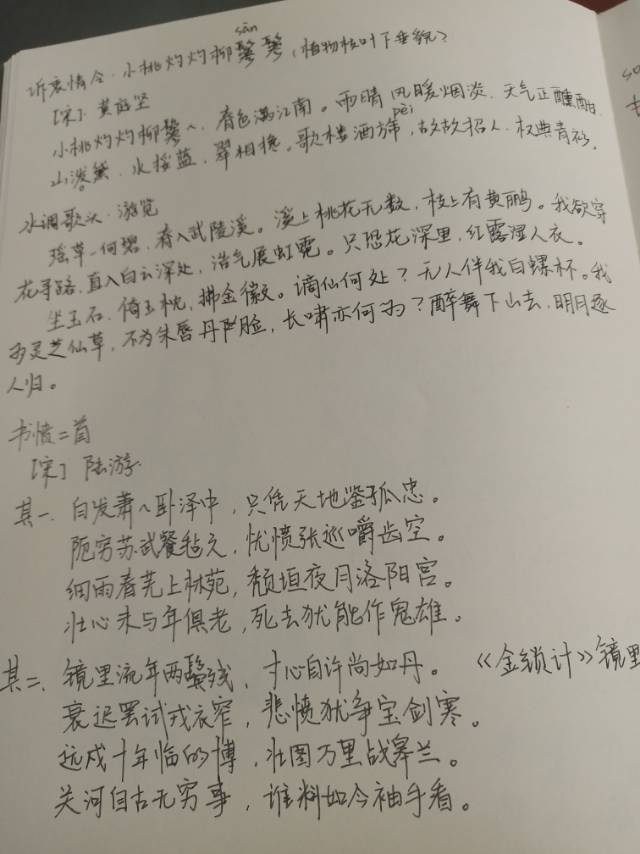 sān
诉衷情令·小桃灼灼柳鬖鬖,植物枝叶下垂貌?
【宋】黄庭坚
小桃灼灼柳鬖〃,春色满江南。雨晴风暖烟淡,天气正醺酣。
pèi
山泼黛,水挼蓝,翠相搀。歌楼酒旆,故故招人,权典青衫。
水调歌头·游览
瑶草一何碧,春入武陵溪。溪上桃花无数,枝上有黄鹂。我欲穿
花寻路,直入白云深处,浩气展虹霓。只恐花深里,红露湿人衣。
坐玉石,倚玉枕,拂金徽。谪仙何处?无人伴我白螺杯。我
为灵芝仙草,不为朱唇丹脸,长啸亦何为?醉舞下山去,明月逐
人归。
书愤二首
【宋】陆游
其一、白发萧〃卧泽中,只凭天地鉴孤忠。
阨穷苏武餐毡久,忧愤张巡嚼齿空。
细雨春芜上林苑,颓垣夜月洛阳宫。
壮心未与年俱老,死去犹能作鬼雄。
其二、镜里流年两鬓残,寸心自许尚如丹。《金锁计》镜里
衰迟罢试戎衣窄,悲愤犹争宝剑寒。
远戍十年临的博,壮图万里战皋兰。
关河自古无穷事,谁料如今袖手看。